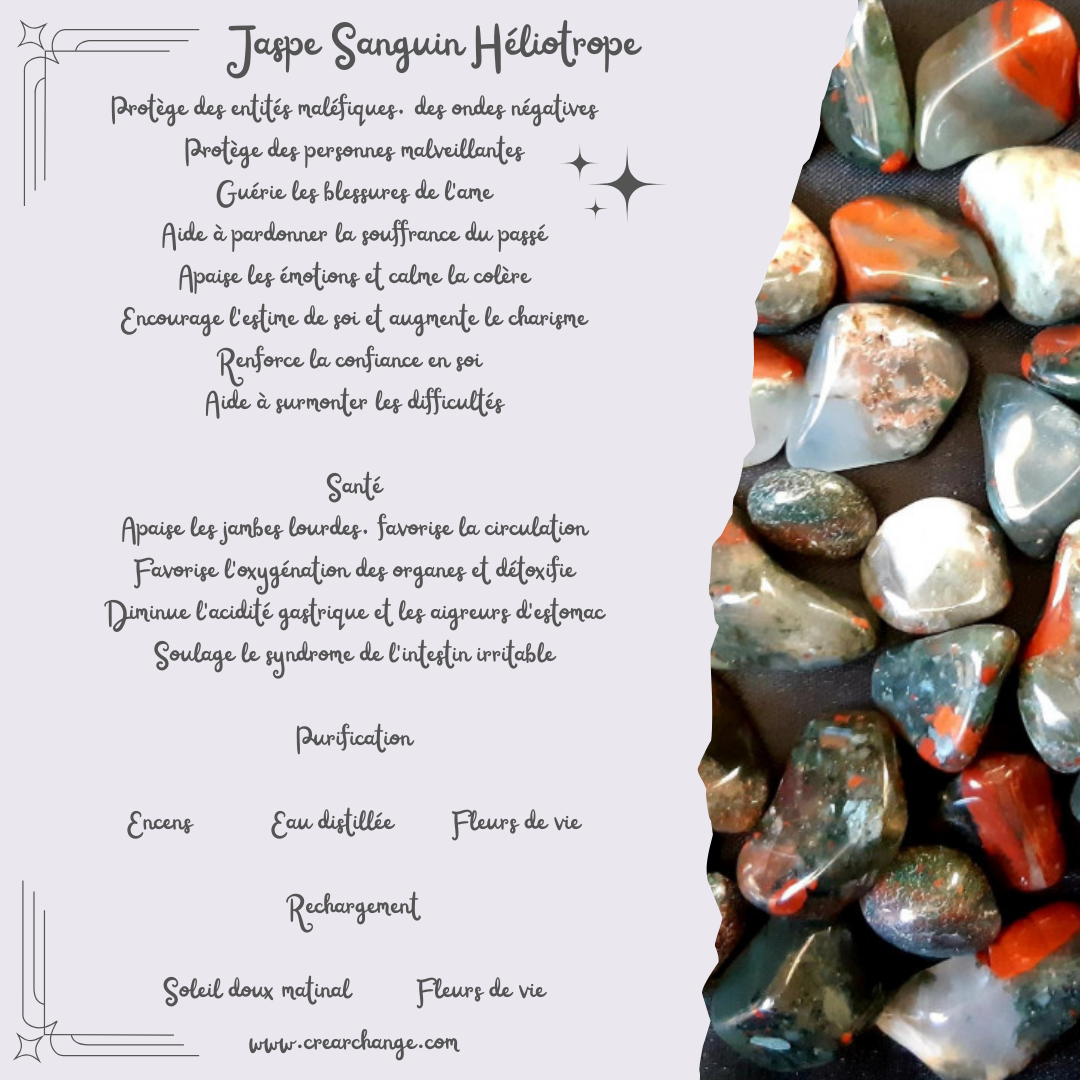 Jaspe Sanguin Héliotrope
Protège des entités maléfiques, des ondes négatives
Protège des personnes malveillantes
Guérie les blessures de l'ame
Aide à pardonner la souffrance du passé
Apaise les émotions et calme la colère
Encourage l'estime de soi et augmente le charisme
Renforce la confiance en soi
Aide à surmonter les difficultés
Santé
Apaise les jambes lourdes, favorise la circulation
Favorise l'oxygénation des organes et détoxifie
Diminue l'acidité gastrique et les aigreurs d'estomac
Soulage le syndrome de l'intestin irritable
Purification
Encens Eau distillée Fleurs de vie
Rechargement
Soleil doux matinal Fleurs de vie
www.crearchange.com